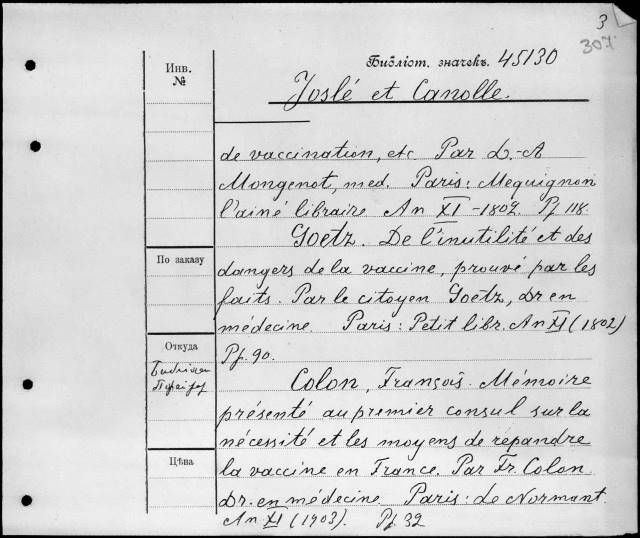 3
307
Инв.
№
Библіот. значекъ. 45130
Joslé et Canolle.
de vaccination, etc Par L.-A
Mongenot, med. Paris: Mequignon
l'ainé libraire An XI -1802. Pf 118
Goetz. De l'inutilité et des
По заказу
dangers de la vaccine, prouvé par les
faits. Par le citoyen Goetz, Dr en
médecine Paris: Petit libr. An XI (1802)
Откуда
Pf. 90.
Colon, François. Mémoire
présenté au premier consul sur la
nécessité et les moyens de répandre
Цѣна
la vaccine en France. Par Fr. Colon
Dr. en médecine Paris: Le Normant
An XI (1903). Pf 32